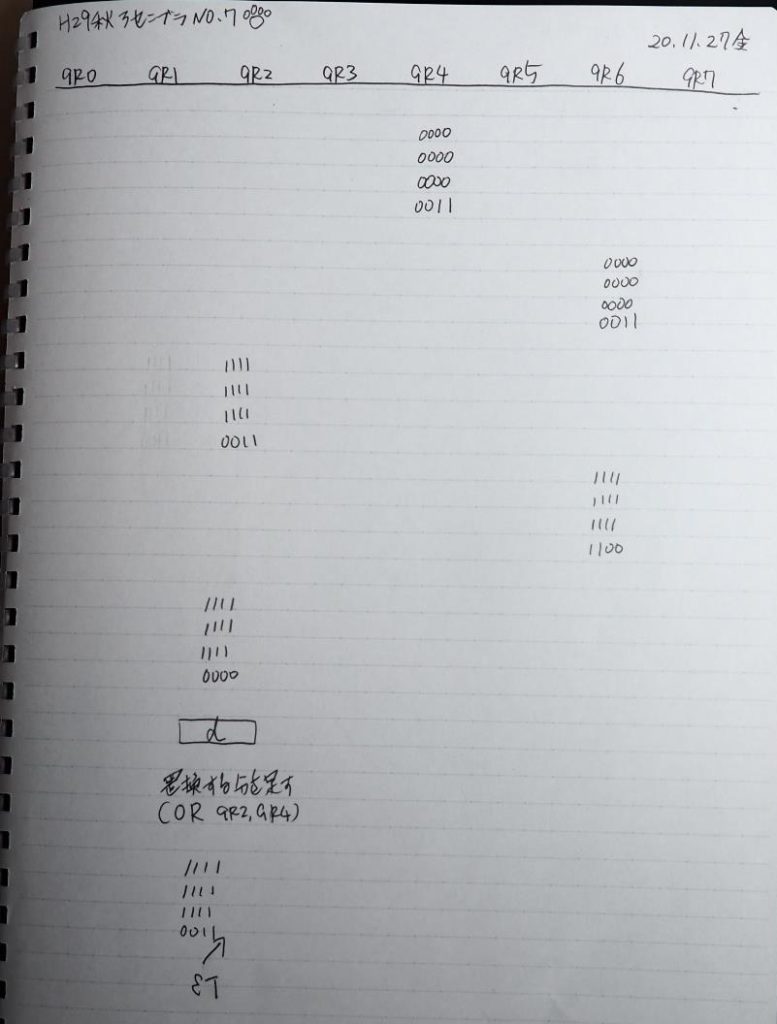 H29秋 アセンブラ NO.7
20.11.27金
GR0 GR1 GR2 GR3 GR4 GR5 GR6 GR7
0000
0000
0000
0011
0000
0000
0000
0011
1111
1111
1111
0011
1111
1111
1111
1100
1111
1111
1111
0000
d
置換するSを足す
(OR GR2,GR4)
1111
1111
1111
0011